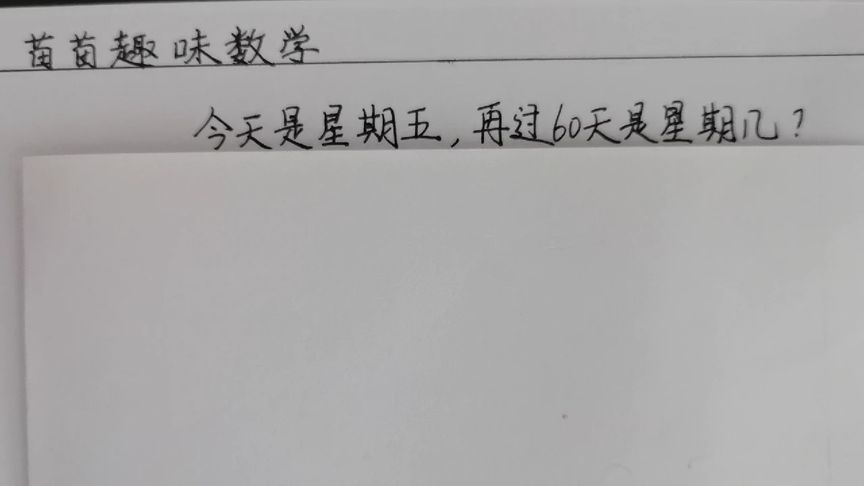 苗苗趣味数学
今天是星期五,再过60天是星期几?